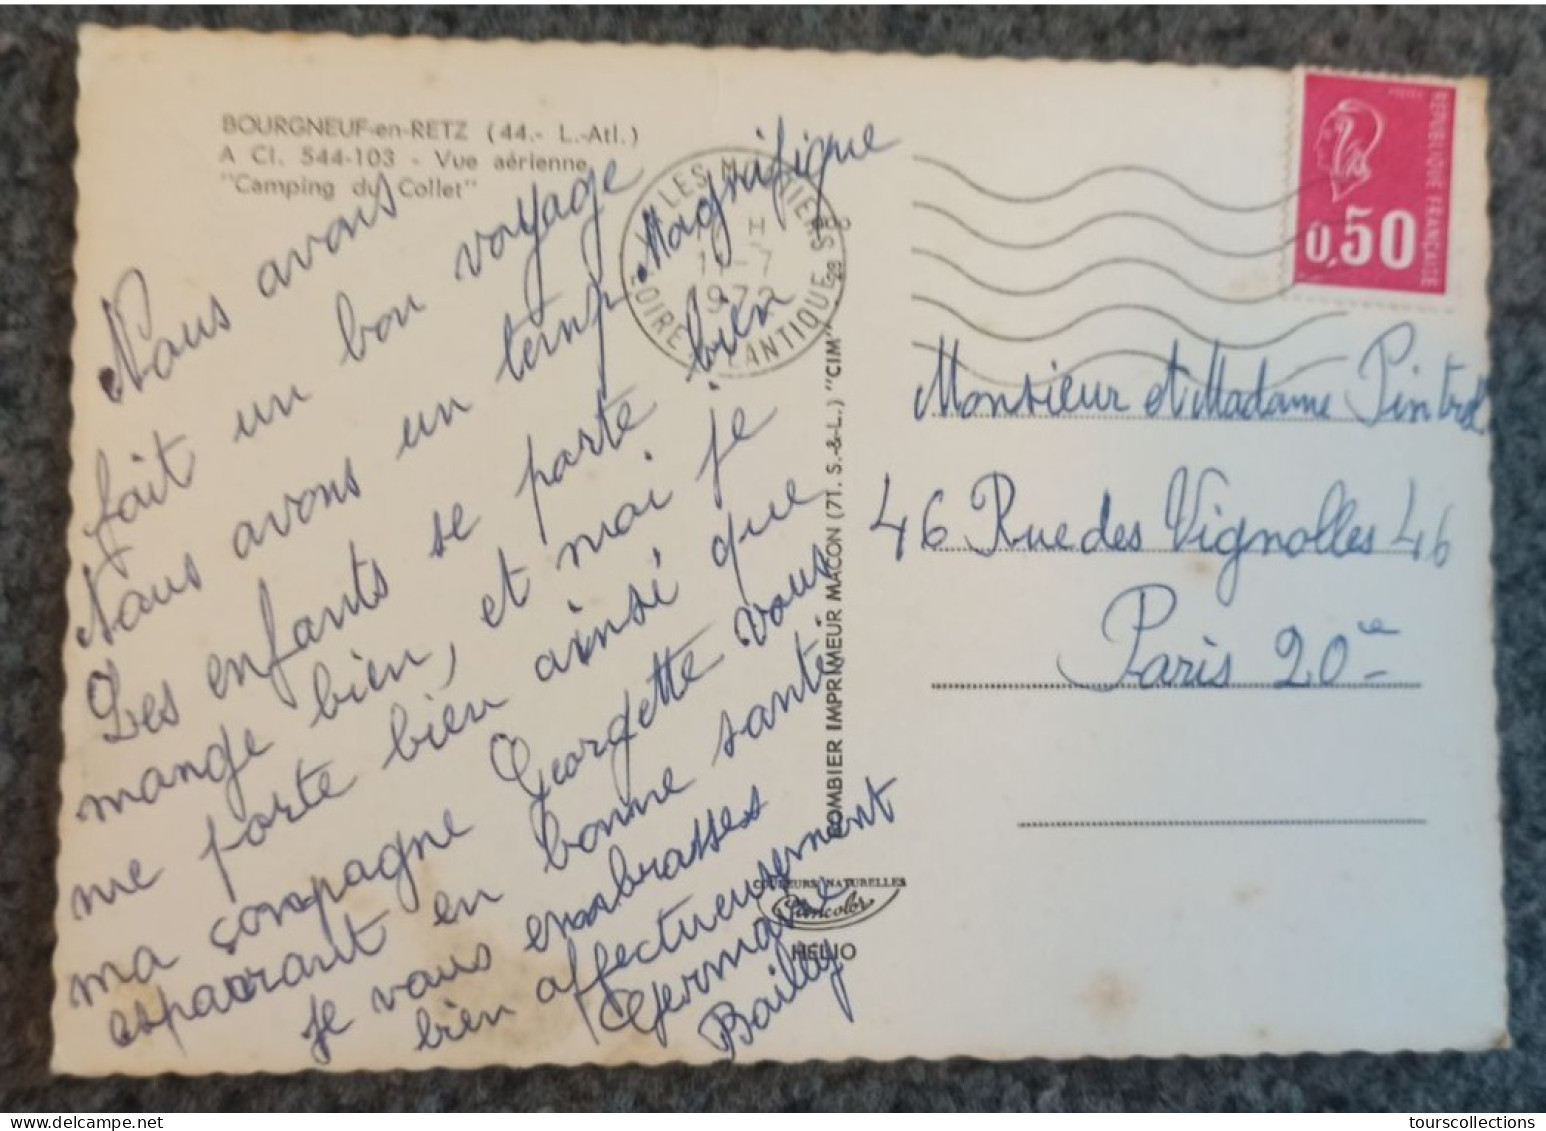 BOURGNEUF-en-RETZ (44.- L.-Atl.)
A Cl. 544-103 - Vue aérienne
"Camping du Collet"
Nous avons
fait un bon voyage
Nous avons un temp Magnifique
Les enfants se porte bien
mange bien, et moi je
me porte bien ainsi que
ma compagne Georgette vous
esparant en bonne santé.
Je vous embrasses
bien affectueusement
Germaine
Bailly
LES MOUTIERS
H
11-7
1972
LOIRE ATLANTIQUE
COMBIER IMPRIMEUR MACON (71. S.-&-L.) "CIM"
COULEURS NATURELLES
HELIO
REPUBLIQUE FRANÇAISE
0,50
Monsieur et Madame
46 Rue des Vignolles 46
Paris 20e
tourscollections